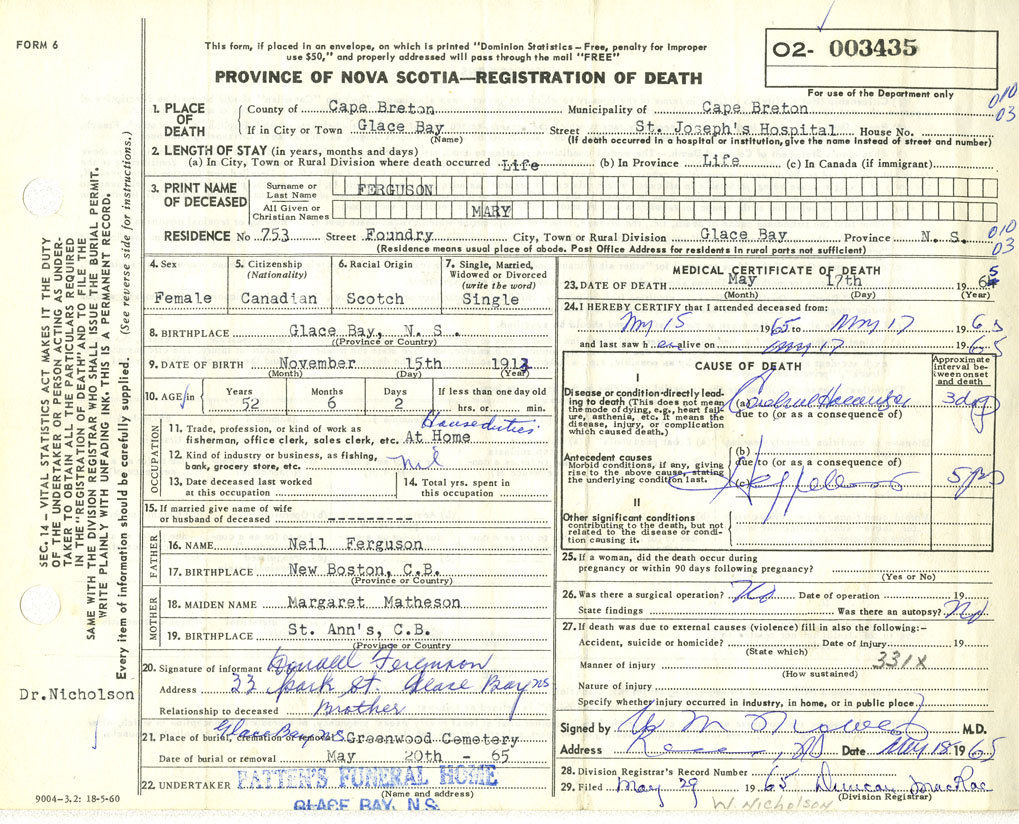 FORM 6
This form, if placed in an envelope, on which is printed "Dominion Statistics – Free, penalty for improper
use $50," and properly addressed will pass through the mail "FREE"
PROVINCE OF NOVA SCOTIA—REGISTRATION OF DEATH
02- 003435
For use of the Department only
010
03
1. PLACE OF DEATH
County of Cape Breton Municipality of Cape Breton
If in City or Town Glace Bay Street St. Joseph's Hospital House No.
(Name) (If death occurred in a hospital or institution, give name instead of street and number)
2. LENGTH OF STAY (in years, months and days)
(a) In City, Town or Rural Division where death occurred Life (b) In Province Life (c) In Canada (if immigrant)
3. PRINT NAME OF DECEASED
Surname or Last Name FERGUSON
All Given or Christian Names MARY
RESIDENCE No 753 Street Foundry City, Town or Rural Division Glace Bay Province N. S.
010
03
(Residence means usual place of abode. Post Office Address for residents in rural parts not sufficient)
4. Sex Female
5. Citizenship (Nationality) Canadian
6. Racial Origin Scotch
7. Single, Married, Widowed or Divorced (write the word) Single
8. BIRTHPLACE Glace Bay, N. S.
(Province or Country)
9. DATE OF BIRTH November 15th 1912
(Month) (Day) (Year)
10. AGE in Years 52 Months 6 Days 2 If less than one day old hrs. or min.
OCCUPATION
11. Trade, profession, or kind of work as
fisherman, office clerk, sales clerk, etc. At Home House duties
12. Kind of industry or business, as fishing,
bank, grocery store, etc. nil
13. Date deceased last worked
at this occupation
14. Total yrs. spent in
this occupation
15. If married give name of wife
or husband of deceased ---------
FATHER
16. NAME Neil Ferguson
17. BIRTHPLACE New Boston, C.B.
(Province or Country)
MOTHER
18. MAIDEN NAME Margaret Matheson
19. BIRTHPLACE St. Ann's, C.B.
(Province or Country)
20. Signature of informant Donald Ferguson
Address 33 Park St. Glace Bay NS
Relationship to deceased Brother
Glace Bay N.S.
21. Place of burial, cremation or removal Greenwood Cemetery
Date of burial or removal May 20th - 65
22. UNDERTAKER PATTEN'S FUNERAL HOME
(Name and address)
GLACE BAY, N.S.
MEDICAL CERTIFICATE OF DEATH
23. DATE OF DEATH May 17th 1965
(Month) (Day) (Year)
24. I HEREBY CERTIFY that I attended deceased from:
May 15 1965 to May 17 1965
and last saw h er alive on May 17 1965
CAUSE OF DEATH
Approximate interval between onset and death
I
Disease or condition directly leading to death (This does not mean the mode of dying, e.g., heart failure, asthenia, etc. It means the disease, injury, or complication which caused death.)
(a) Cerebral Hemorrhage 3 days
due to (or as a consequence of)
Antecedent causes
Morbid conditions, if any, giving rise to the above cause, stating the underlying condition last.
(b)
due to (or as a consequence of)
(c) 5 yrs
II
Other significant conditions
contributing to the death, but not related to the disease or condition causing it.
25. If a woman, did the death occur during
pregnancy or within 90 days following pregnancy?
(Yes or No)
26. Was there a surgical operation? No Date of operation 19
State findings Was there an autopsy? No
27. If death was due to external causes (violence) fill in also the following:–
Accident, suicide or homicide? Date of injury 19
(State which)
Manner of injury 331X
(How sustained)
Nature of injury
Specify whether injury occurred in industry, in home, or in public place
Signed by M.D.
Address Date May 18 1965
28. Division Registrar's Record Number
29. Filed May 29 1965 Duncan MacRae
(Division Registrar)
W. Nicholson
SEC. 14 – VITAL STATISTICS ACT MAKES IT THE DUTY
OF THE UNDERTAKER OR PERSON ACTING AS UNDER-
TAKER TO OBTAIN ALL THE PARTICULARS REQUIRED
IN THE "REGISTRATION OF DEATH" AND TO FILE THE
SAME WITH THE DIVISION REGISTRAR WHO SHALL ISSUE THE BURIAL PERMIT.
WRITE PLAINLY WITH UNFADING INK. THIS IS A PERMANENT RECORD.
Every item of information should be carefully supplied. (See reverse side for instructions.)
Dr. Nicholson
9004–3.2: 18-5-60